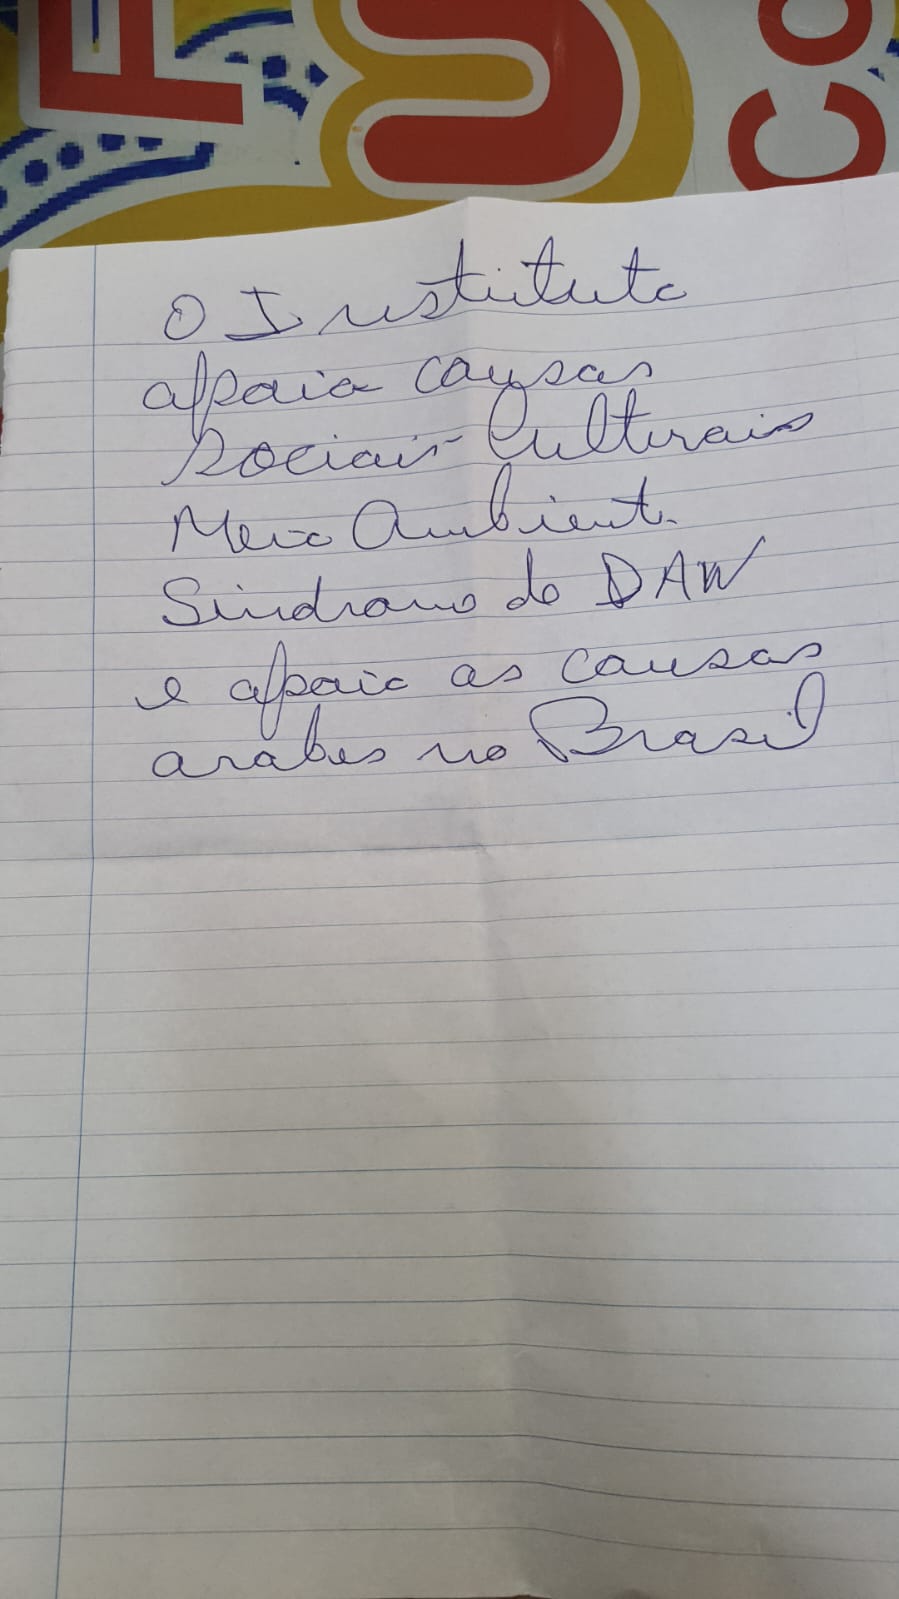 F
U
CO
O Instituto
apoia causas
sociais Culturais
Meio Ambient.
Sindrome de DAW
e apoia as causas
arabes no Brasil